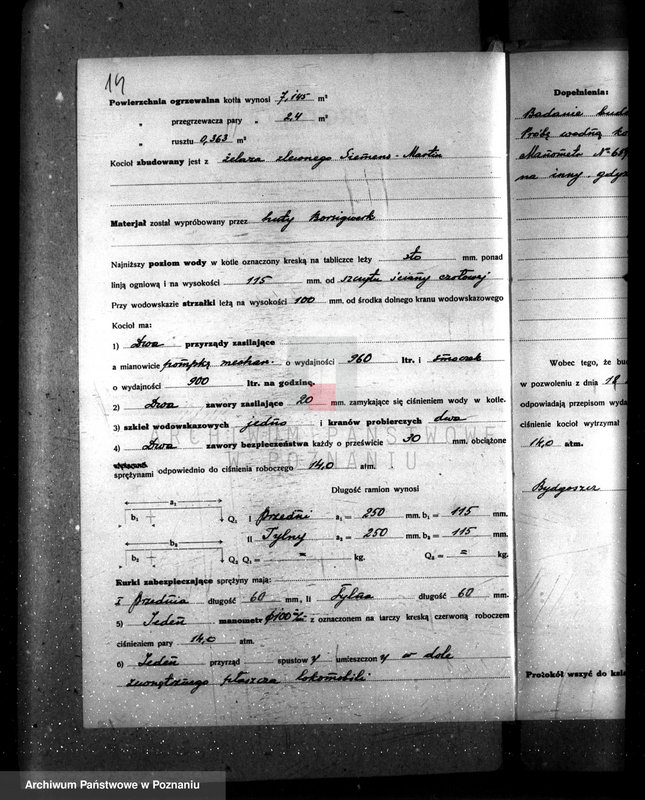 14
Powierzchnia ogrzewalna kotła wynosi 7,145 m²
„ przegrzewacza pary „ 2,4 m²
„ rusztu 0,363 m²
Kocioł zbudowany jest z żelaza zlewnego Siemens-Martin
Materjał został wypróbowany przez huty Borsigwerk
Najniższy poziom wody w kotle oznaczony kreską na tabliczce leży sto mm. ponad
linją ogniową i na wysokości 115 mm. od szczytu ściany czołowej
Przy wodowskazie strzałki leżą na wysokości 100 mm. od środka dolnego kranu wodowskazowego
Kocioł ma:
1) Dwa przyrządy zasilające
a mianowicie pompkę mechan. o wydajności 960 ltr. i smoczek
o wydajności 900 ltr. na godzinę.
2) Dwa zawory zasilające 20 mm. zamykające się ciśnieniem wody w kotle.
3) szkieł wodowskazowych jedno i kranów probierczych dwa
4) Dwa zawory bezpieczeństwa każdy o prześwicie 30 mm. obciążone
sprężynami odpowiednio do ciśnienia roboczego 14,0 atm.
Długość ramion wynosi
a₁ b₁ Q₁ I Przedni a₁ = 250 mm. b₁ = 115 mm.
II Tylny a₂ = 250 mm. b₂ = 115 mm.
b₂ Q₂ Q₁ = = kg. Q₂ = = kg.
Rurki zabezpieczające sprężyny mają:
I Przednia długość 60 mm., II Tylna długość 60 mm.
5) Jeden manometr ϕ 100 m/m z oznaczonem na tarczy kreską czerwoną roboczem
ciśnieniem pary 14,0 atm.
6) Jeden przyrząd spustowy umieszczony w dole
zewnętrznego płaszcza lokomobili
Dopełnienia:
Badanie
Próbę wodną
Manometr №
na inny. gdyż
Wobec tego, że
w pozwoleniu z dnia 18
odpowiadają przepisom
ciśnienie kocioł wytrzymał
14,0 atm.
Bydgoszcz
Protokół wszyć do
ARCHIWUM PAŃSTWOWE
W POZNANIU
Archiwum Państwowe w Poznaniu